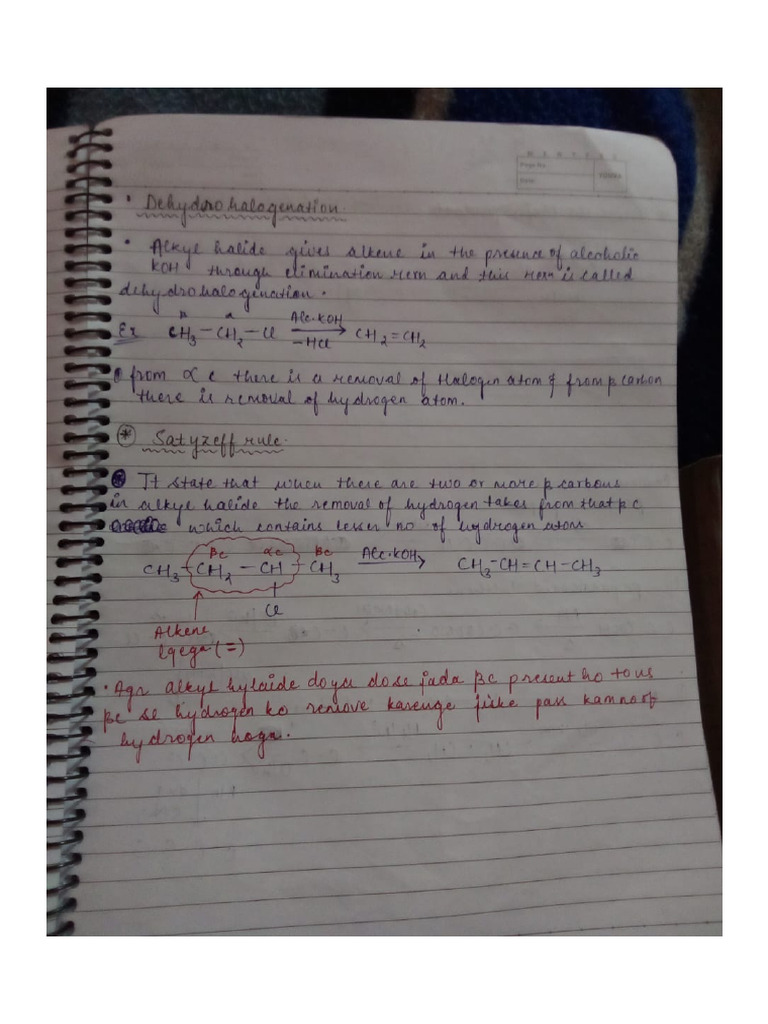 • Dehydrohalogenation.
• Alkyl halide gives alkene in the presence of alcoholic
KOH through elimination rexn and this rexn is called
dehydrohalogenation.
β α
Ex CH3-CH2-Cl Alc.KOH → CH2=CH2
-HCl
from α c there is a removal of Halogen atom & from β carbon
there is removal of hydrogen atom.
* Satyzeff rule.
It state that when there are two or more β carbons
in alkyl halide the removal of hydrogen takes from that β c
which contains lesser no of hydrogen atom
βc αc βc
CH3-CH2-CH-CH3 Alc.KOH → CH3-CH=CH-CH3
Cl
Alkene
lgega (=)
• Agr alkyl hylaide do ya do se jada βc present ho to us
βc se hydrogen ko remove karenge jiske pass kam no of
hydrogen hoga.